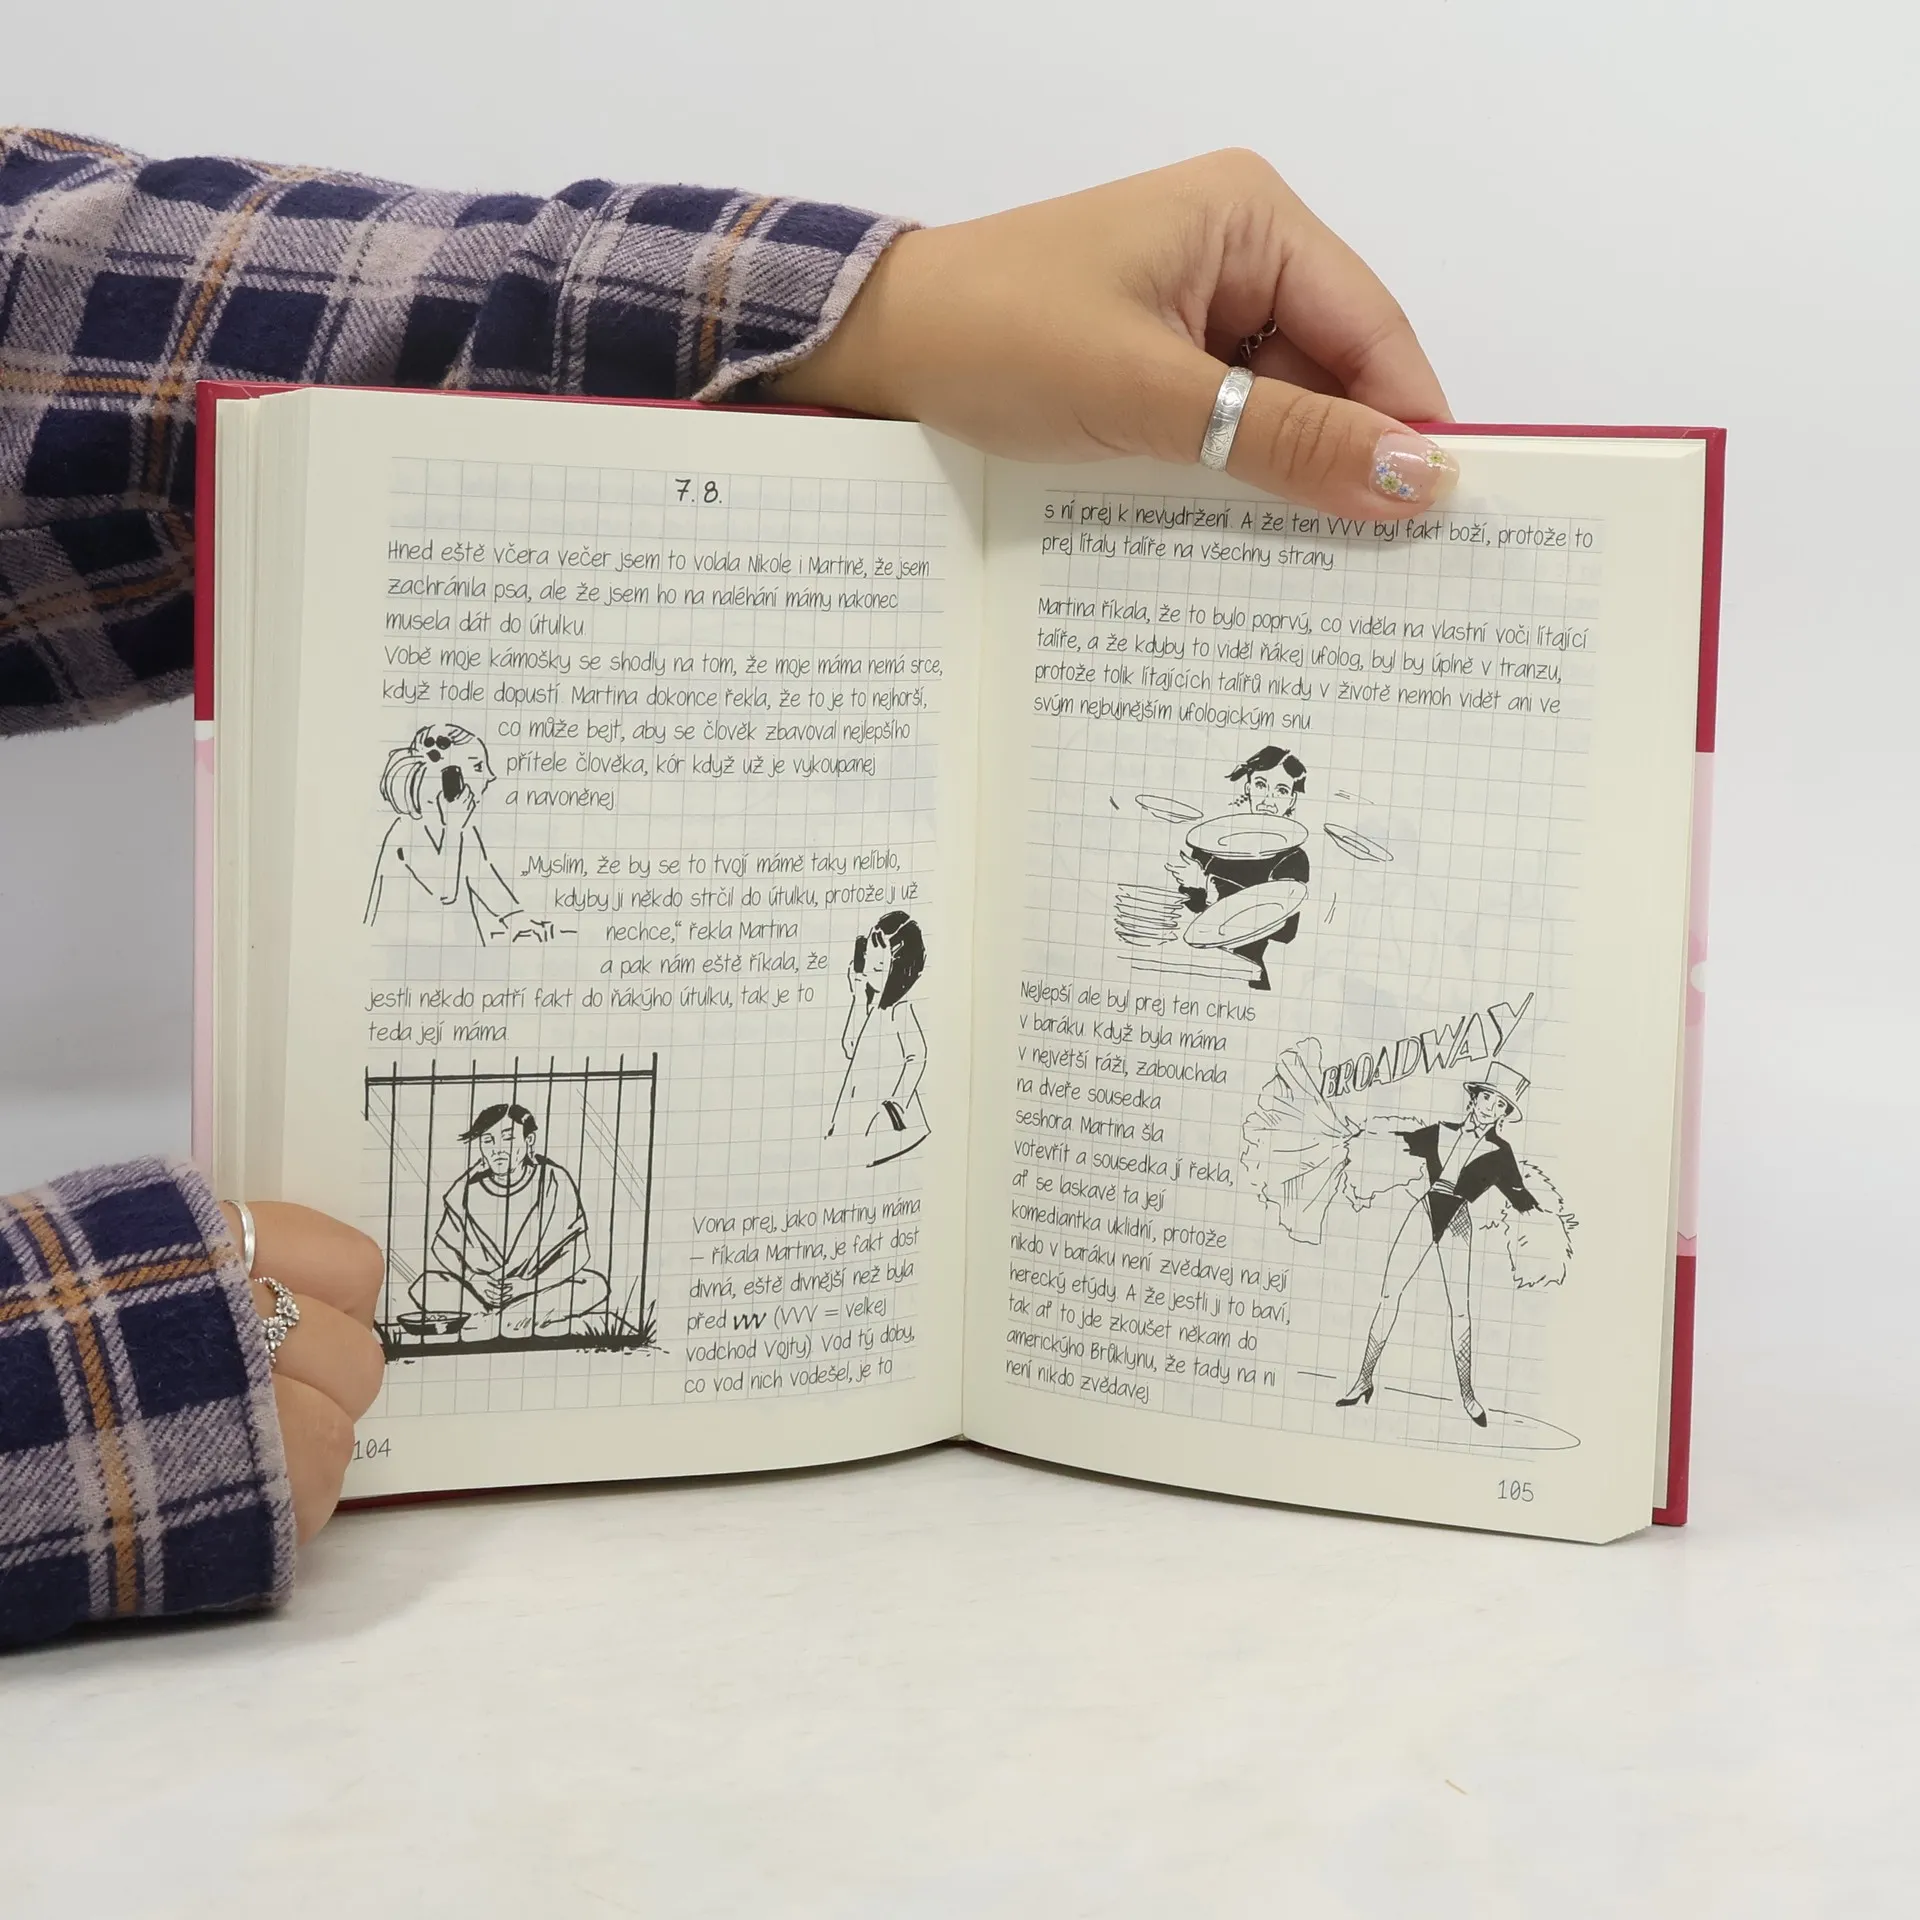 7. 8.
Hned eště včera večer jsem to volala Nikole i Martině, že jsem
zachránila psa, ale že jsem ho na naléhání mámy nakonec
musela dát do útulku.
Vobě moje kámošky se shodly na tom, že moje máma nemá srce,
když todle dopustí. Martina dokonce řekla, že to je to nejhorší,
co může bejt, aby se člověk zbavoval nejlepšího
přítele člověka, kór když už je vykoupanej
a navoněnej.
„Myslim, že by se to tvojí mámě taky nelíbilo,
kdyby ji někdo strčil do útulku, protože ji už
nechce,“ řekla Martina
a pak nám eště říkala, že
jestli někdo patří fakt do ňákýho útulku, tak je to
teda její máma.
Vona prej, jako Martiny máma
– říkala Martina, je fakt dost
divná, eště divnější než byla
před VVV (VVV = velkej
vodchod Vojty). Vod tý doby,
co vod nich vodešel, je to
104
s ní prej k nevydržení. A že ten VVV byl fakt boží, protože to
prej lítaly talíře na všechny strany.
Martina říkala, že to bylo poprvý, co viděla na vlastní voči lítající
talíře, a že kdyby to viděl ňákej ufolog, byl by úplně v tranzu,
protože tolik lítajících talířů nikdy v životě nemoh vidět ani ve
svým nejbujnějším ufologickým snu.
Nejlepší ale byl prej ten cirkus
v baráku. Když byla máma
v největší ráži, zabouchala
na dveře sousedka
seshora. Martina šla
votevřít a sousedka jí řekla,
ať se laskavě ta její
komediantka uklidní, protože
nikdo v baráku není zvědavej na její
herecký etýdy. A že jestli ji to baví,
tak ať to jde zkoušet někam do
americkýho Brůklynu, že tady na ni
není nikdo zvědavej.
BROADWAY
105